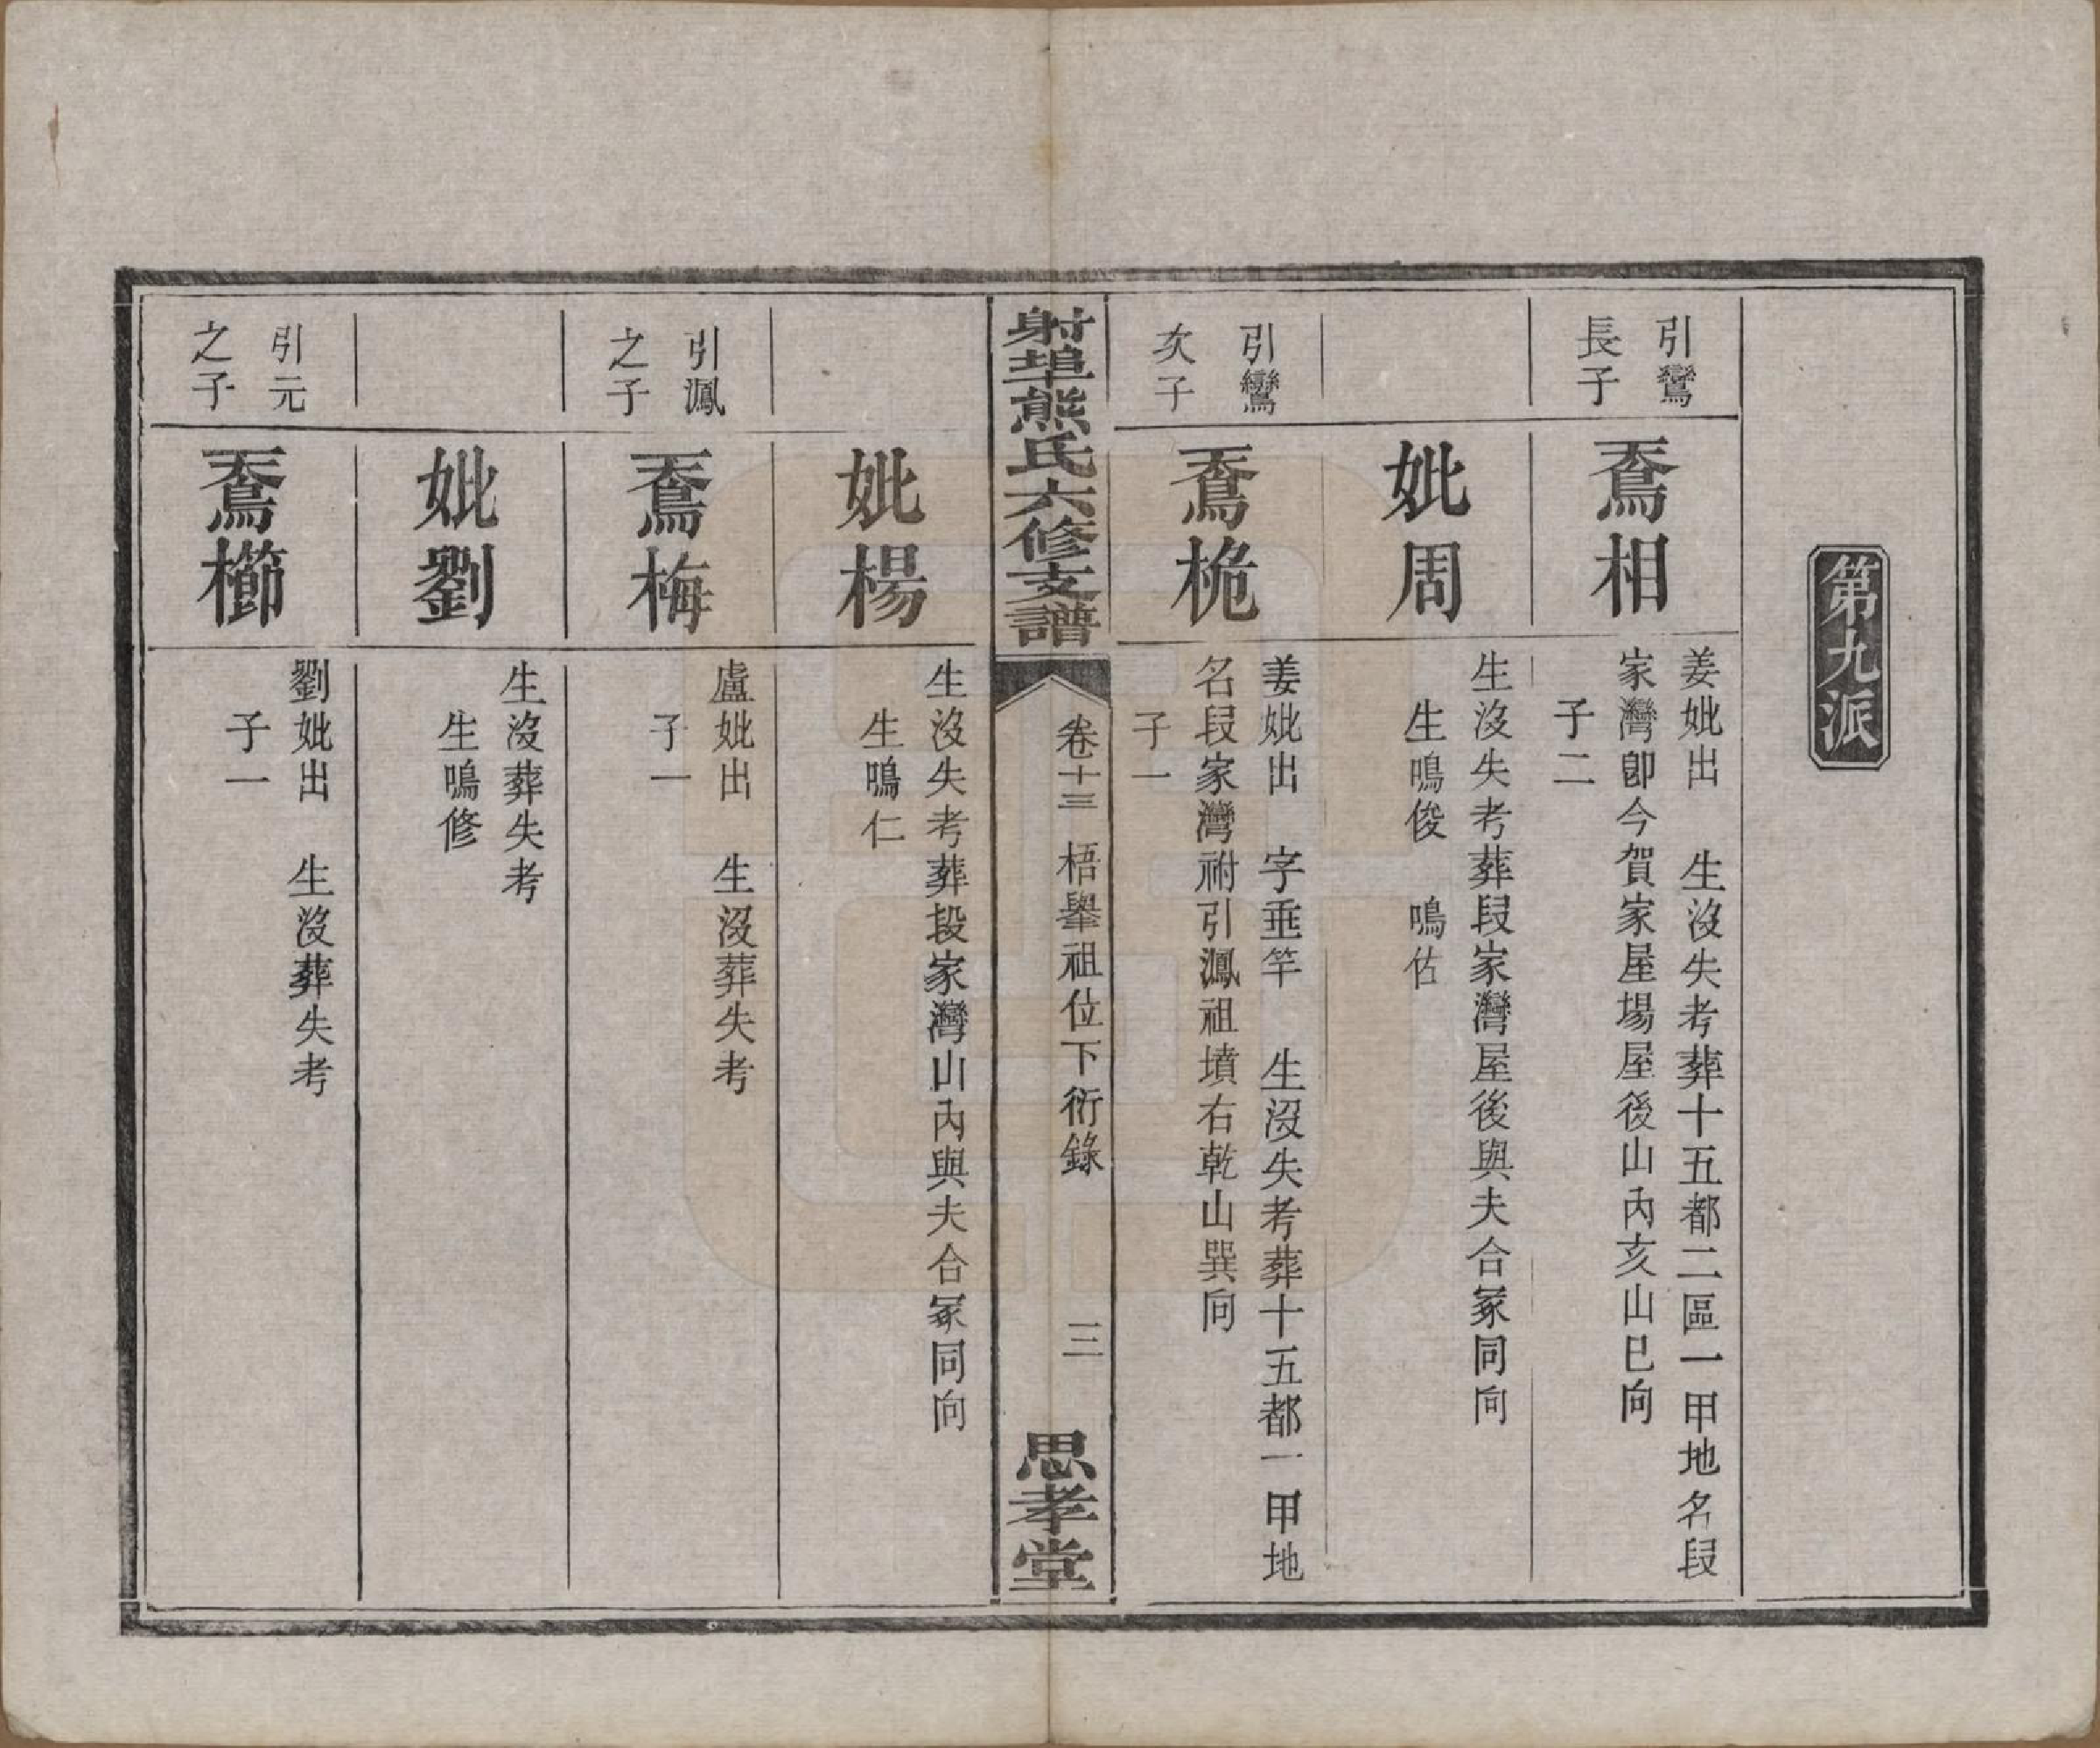 第九派
引鸞
長子
鴌相
姜妣出　生沒失考葬十五都二區一甲地名段
家灣卽今賀家屋場屋後山內亥山巳向
子二
妣周
生沒失考葬段家灣屋後與夫合冢同向
生鳴俊　鳴佑
引鸞
次子
鴌桅
姜妣出　字垂竿　生沒失考葬十五都一甲地
名段家灣祔引鳳祖墳右乾山巽向
子一
射埠熊氏六修支譜
卷十三　梧舉祖位下衍錄　三
思孝堂
妣楊
生沒失考葬段家灣山內與夫合冢同向
生鳴仁
引鳳
之子
鴌梅
盧妣出　生沒葬失考
子一
妣劉
生沒葬失考
生鳴修
引元
之子
鴌櫛
劉妣出　生沒葬失考
子一